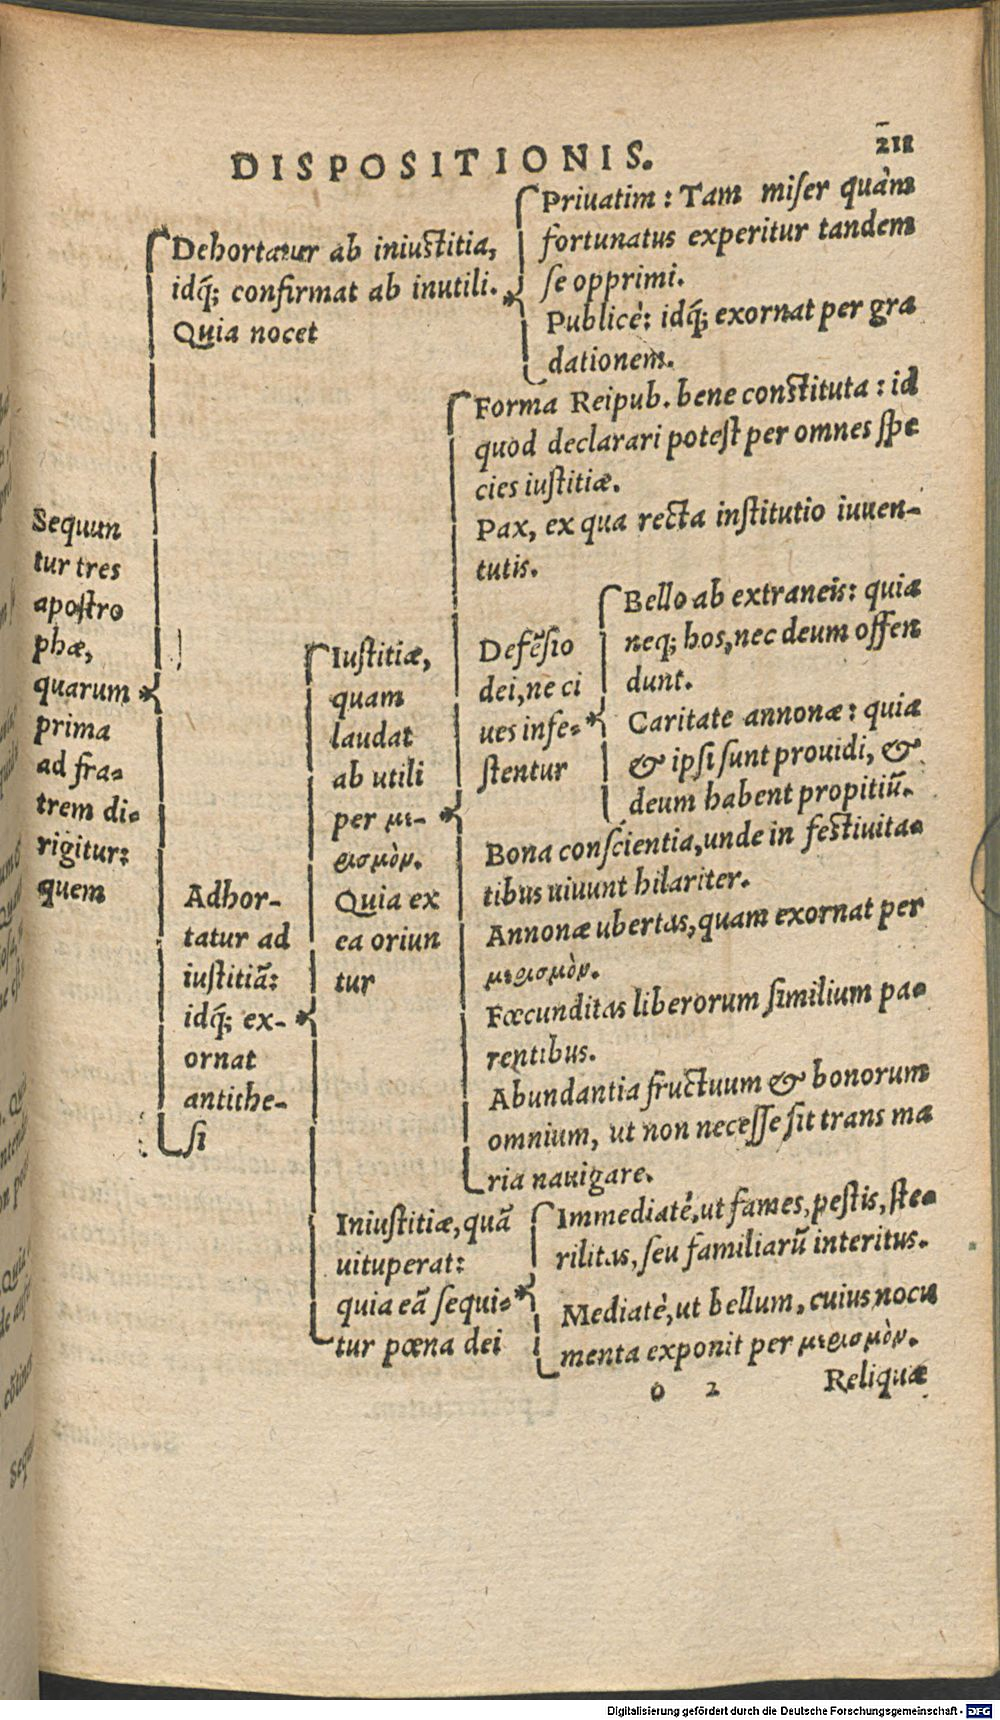 DISPOSITIONIS.
211
Dehortatur ab iniustitia,
idq́; confirmat ab inutili.
Quia nocet
Priuatim: Tam miser quàm
fortunatus experitur tandem
se opprimi.
Publicè: idq́; exornat per gra
dationem.
Sequun
tur tres
apostro
phæ,
quarum
prima
ad fra-
trem di-
rigitur:
quem
Adhor-
tatur ad
iustitiā:
idq́; ex-
ornat
antithe-
si
Iustitiæ,
quam
laudat
ab utili
per με-
ρισμὸν.
Quia ex
ea oriun
tur
Forma Reipub. bene constituta: id
quod declarari potest per omnes spe
cies iustitiæ.
Pax, ex qua recta institutio iuuen-
tutis.
Defēsio
dei, ne ci
ues infe-
stentur
Bello ab extraneis: quia
neq; hos, nec deum offen
dunt.
Caritate annonæ: quia
& ipsi sunt prouidi, &
deum habent propitiū.
Bona conscientia, unde in festiuita-
tibus uiuunt hilariter.
Annonæ ubertas, quam exornat per
μερισμὸν.
Fœcunditas liberorum similium pa-
rentibus.
Abundantia fructuum & bonorum
omnium, ut non necesse sit trans ma
ria nauigare.
Iniustitiæ, quā
uituperat:
quia eā sequi-
tur pœna dei
Immediatè, ut fames, pestis, ste-
rilitas, seu familiarū interitus.
Mediatè, ut bellum, cuius nocu
menta exponit per μερισμὸν.
o 2
Reliquæ
Digitalisierung gefördert durch die Deutsche Forschungsgemeinschaft - DFG